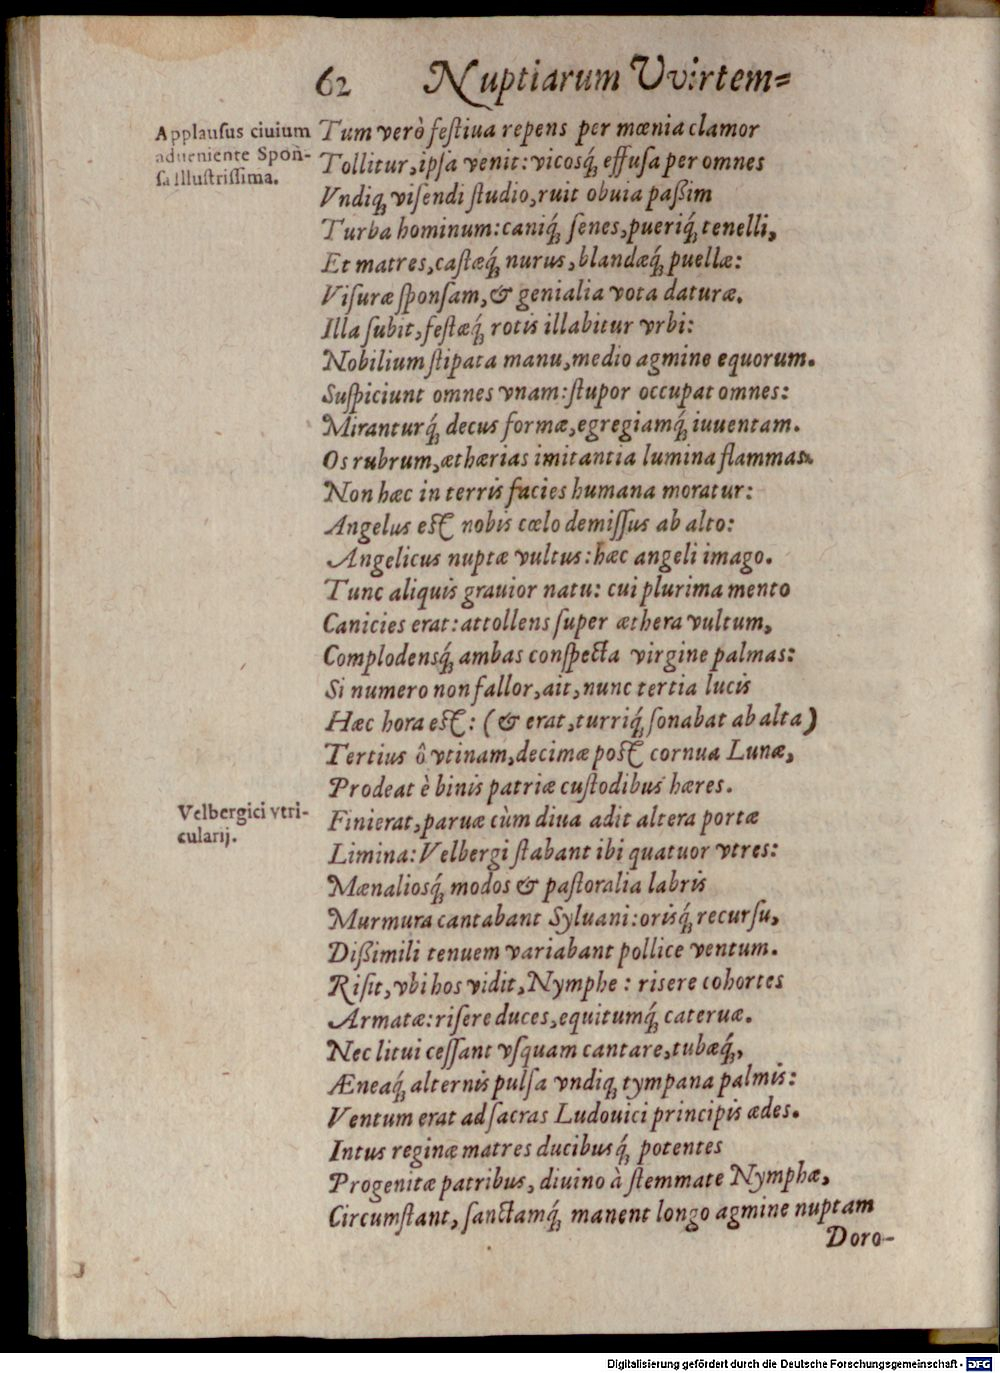 62 Nuptiarum Vvirtem=
Applausus ciuium
adueniente Spon-
sa illustrissima.
Tum verò festiua repens per mœnia clamor
Tollitur, ipsa venit: vicosq́; effusa per omnes
Vndiq; visendi studio, ruit obuia paßim
Turba hominum: caniq́; senes, pueriq́; tenelli,
Et matres, castæq́; nurus, blandæq́; puellæ:
Visuræ sponsam, & genialia vota daturæ.
Illa subit, festæq́; rotis illabitur vrbi:
Nobilium stipata manu, medio agmine equorum.
Suspiciunt omnes vnam: stupor occupat omnes:
Miranturq́; decus formæ, egregiamq́; iuuentam.
Os rubrum, æthærias imitantia lumina flammas.
Non hæc in terris facies humana moratur:
Angelus est nobis cœlo demissus ab alto:
Angelicus nuptæ vultus: hæc angeli imago.
Tunc aliquis grauior natu: cui plurima mento
Canicies erat: attollens super æthera vultum,
Complodensq́; ambas conspecta virgine palmas:
Si numero non fallor, ait, nunc tertia lucis
Hæc hora est: (& erat, turriq́; sonabat ab alta)
Tertius ô vtinam, decimæ post cornua Lunæ,
Prodeat è binis patriæ custodibus hæres.
Velbergici vtri-
cularij.
Finierat, paruæ cùm diua adit altera portæ
Limina: Velbergi stabant ibi quatuor vtres:
Mænaliosq́; modos & pastoralia labris
Murmura cantabant Syluani: orisq́; recursu,
Dißimili tenuem variabant pollice ventum.
Risit, vbi hos vidit, Nymphe: risere cohortes
Armatæ: risere duces, equitumq́; cateruæ.
Nec litui cessant vsquam cantare, tubæq́;,
Æneaq́; alternis pulsa vndiq; tympana palmis:
Ventum erat ad sacras Ludouici principis ædes.
Intus reginæ matres ducibusq́; potentes
Progenitæ patribus, diuino à stemmate Nymphæ,
Circumstant, sanctamq́; manent longo agmine nuptam
Doro-
Digitalisierung gefördert durch die Deutsche Forschungsgemeinschaft - DFG